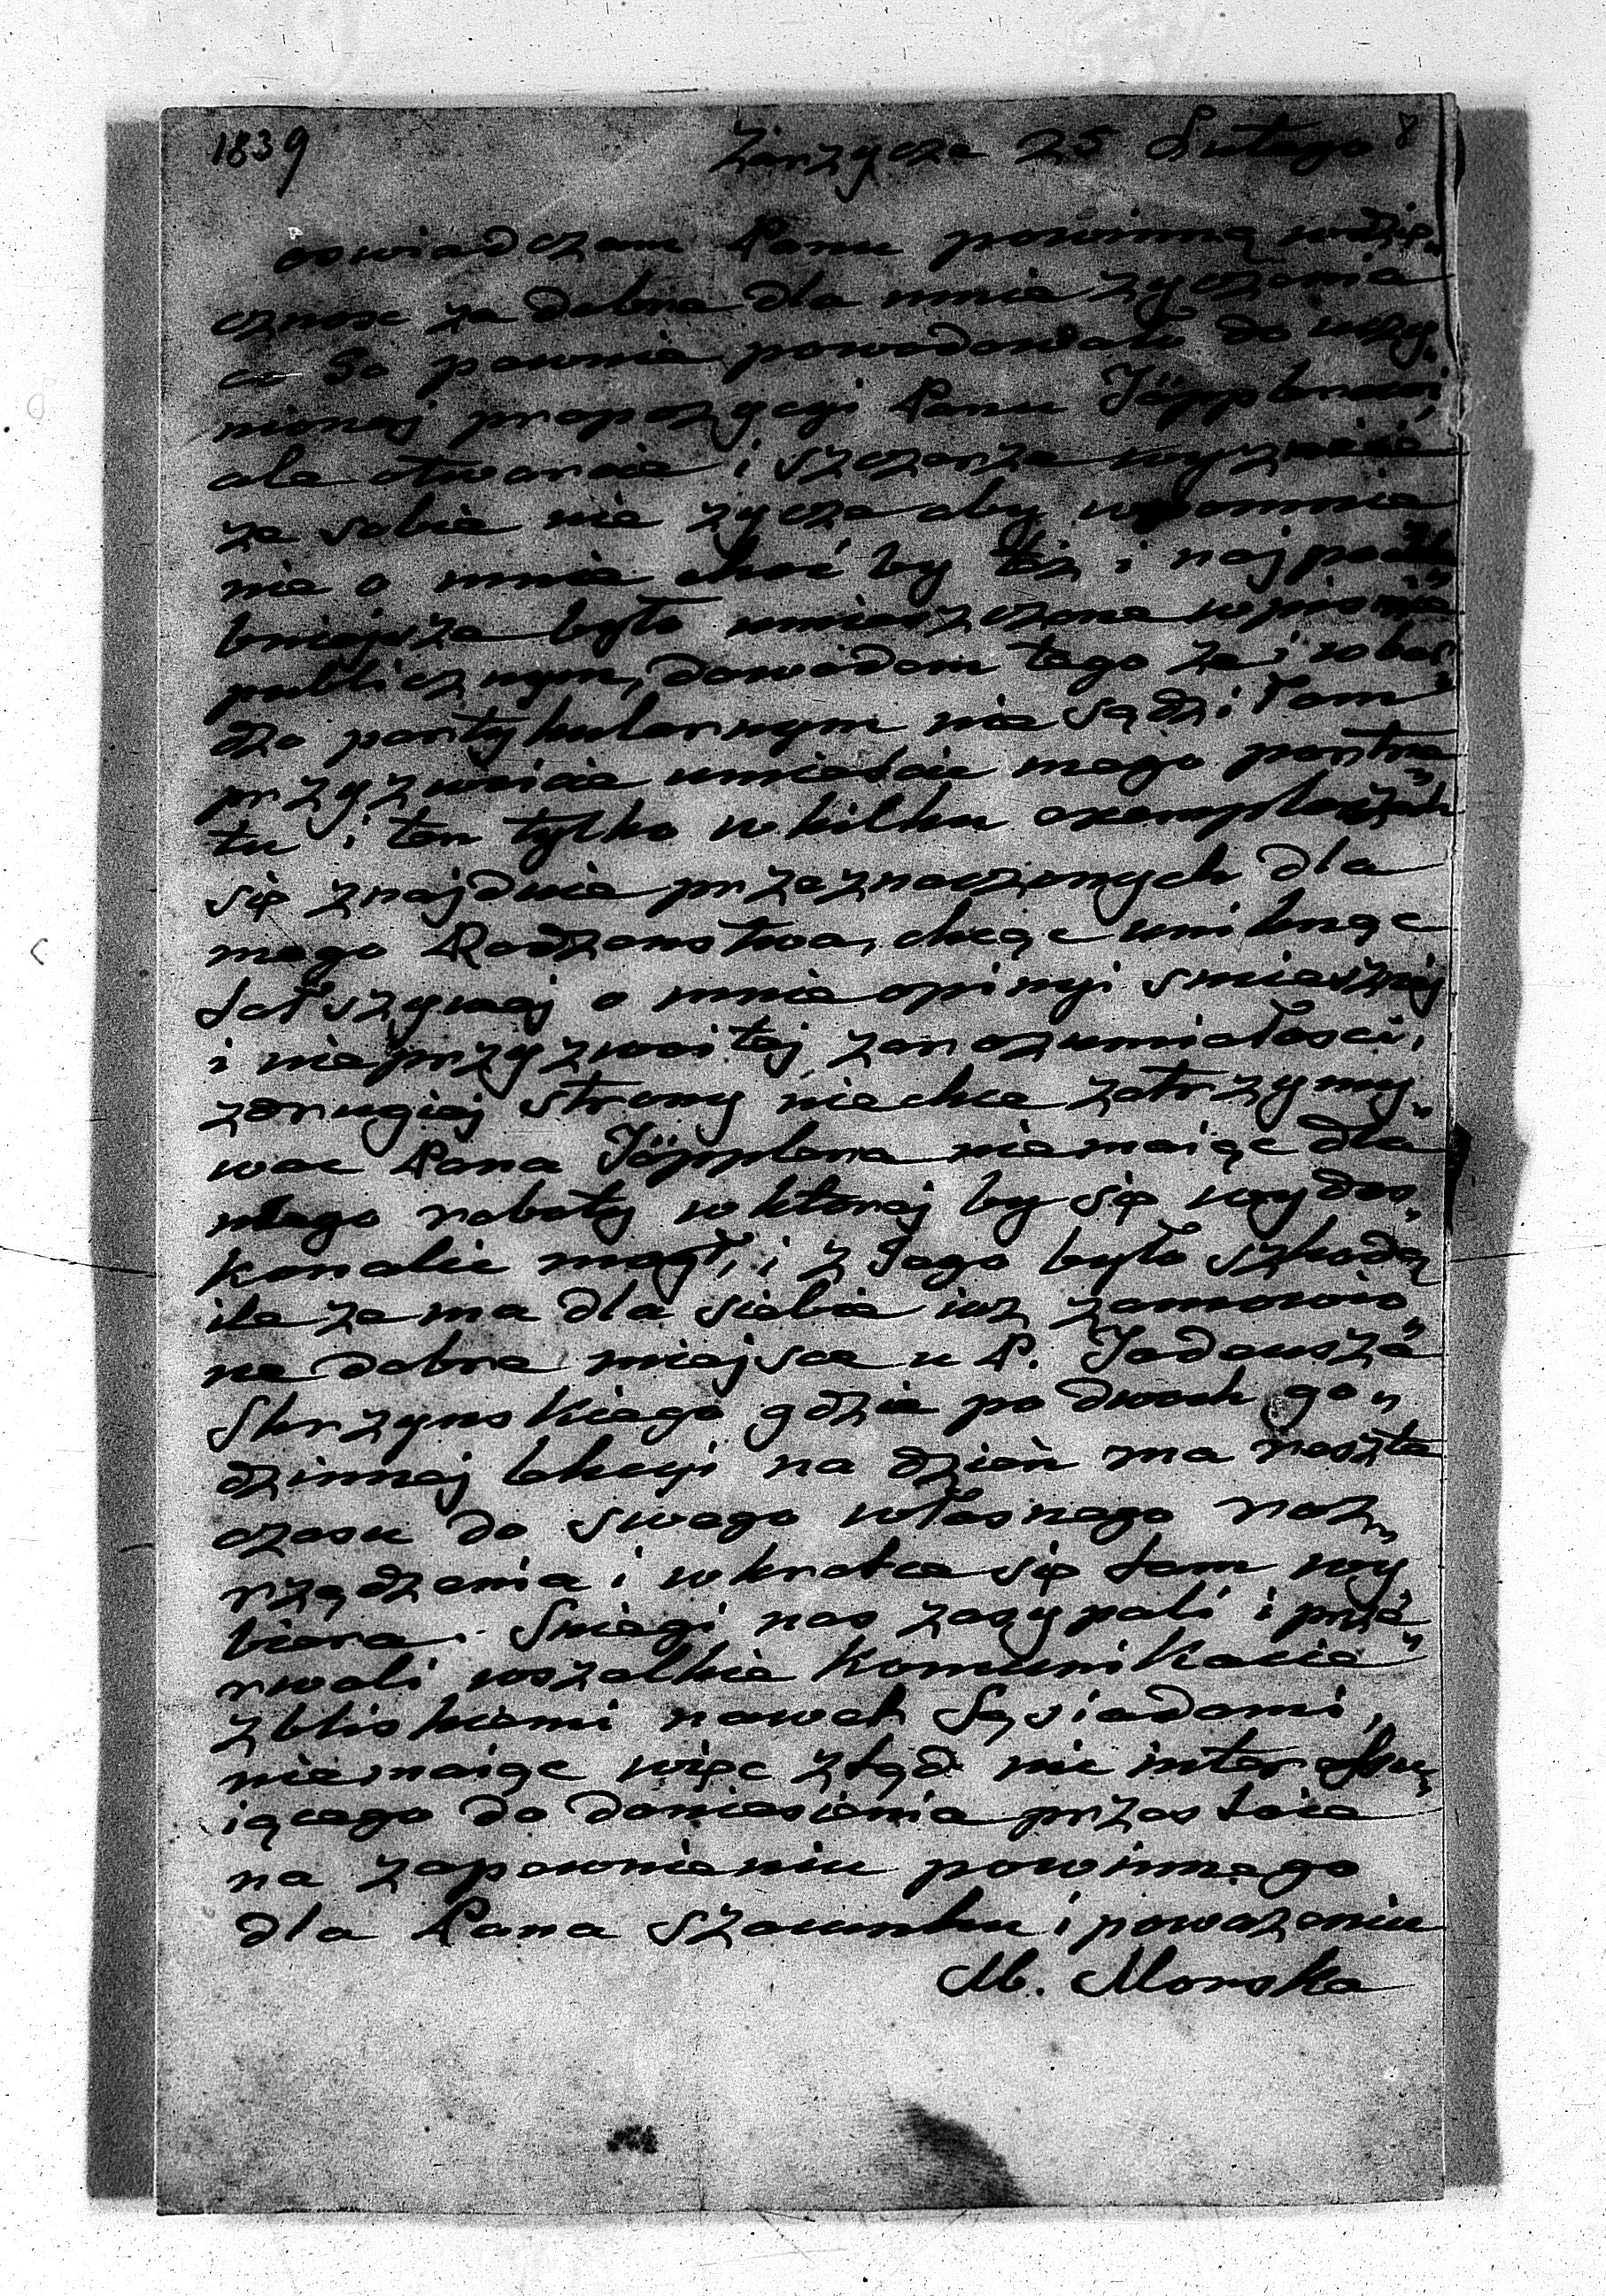 1839 Zarzycze 25 Lutego 8
oswiadczam Panu powinną wdzię„
cznosc za dobre dla mnie zyczenia
co Go pewnie powodowało do uczy„
nionej propozycyi Panu Jäpplerowi,
ale otwarcie i szczerze wyznaię
ze sobie nie zycze aby wspomnie
nie o mnie choć by też i najpochle
bniejsze było umieszczone w pismie
publicznym, dowodem tego ze i w bar„
dzo partykularnym nie sądziłam
przyzwoicie umieścic mego portre„
tu i ten tylko w kilku exemplarzach
się znajduie przeznaczonych dla
mego Rodzenstwa, chcąc uniknąc
fałszywej o mnie opinyi smiesznej
i nieprzyzwoitej zarozumiałosci,
z drugiej strony niechce zatrzymy„
wac Pana Jäpplera niemaiąc dla
niego roboty w ktorej by się wydos„
konalic mogł, i z Jego było szkodą
ile ze ma dla siebie iuz zamowio„
ne dobre miejsce u P. Tadeusza
Skrzynskiego gdzie po dwoch go„
dzinnej lekcyi na dzień ma resztę
czasu do swego własnego roz„
rządzenia i wkrotce się tam wy
biera. Sniegi nas zasypali i prze„
rwali wszelkie Komunikacie
z bliskiemi nawet Sąsiadami,
niemaiąc więc ztąd nic interessu„
iącego do doniesienia przestaie
na zapewnieniu powinnego
dla Pana szacunku i powazeniu
M. Morska